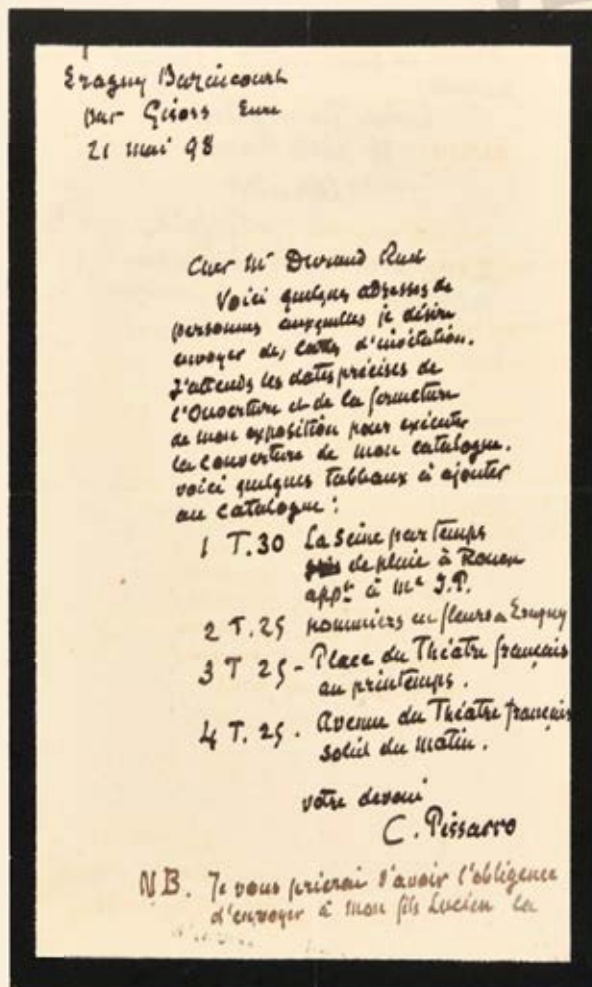 Eragny Bazincourt
par Gisors Eure
21 mai 98
Cher Mr Durand Ruel
Voici quelques adresses de
personnes auxquelles je désire
envoyer des lettres d'invitation.
J'attends les dates précises de
l'Ouverture et de la fermeture
de mon exposition pour exécuter
la couverture de mon catalogue.
voici quelques tableaux à ajouter
au catalogue :
1 T.30 La Seine par temps
de pluie à Rouen
appt à Me J.P.
2 T.25 pommiers en fleurs à Eragny
3 T 25 - Place du Théâtre français
au printemps.
4 T. 25. Avenue du Théatre français
soleil du matin.
votre dévoué
C. Pissarro
N.B. Je vous prierai d'avoir l'obligence
d'envoyer à mon fils Lucien la